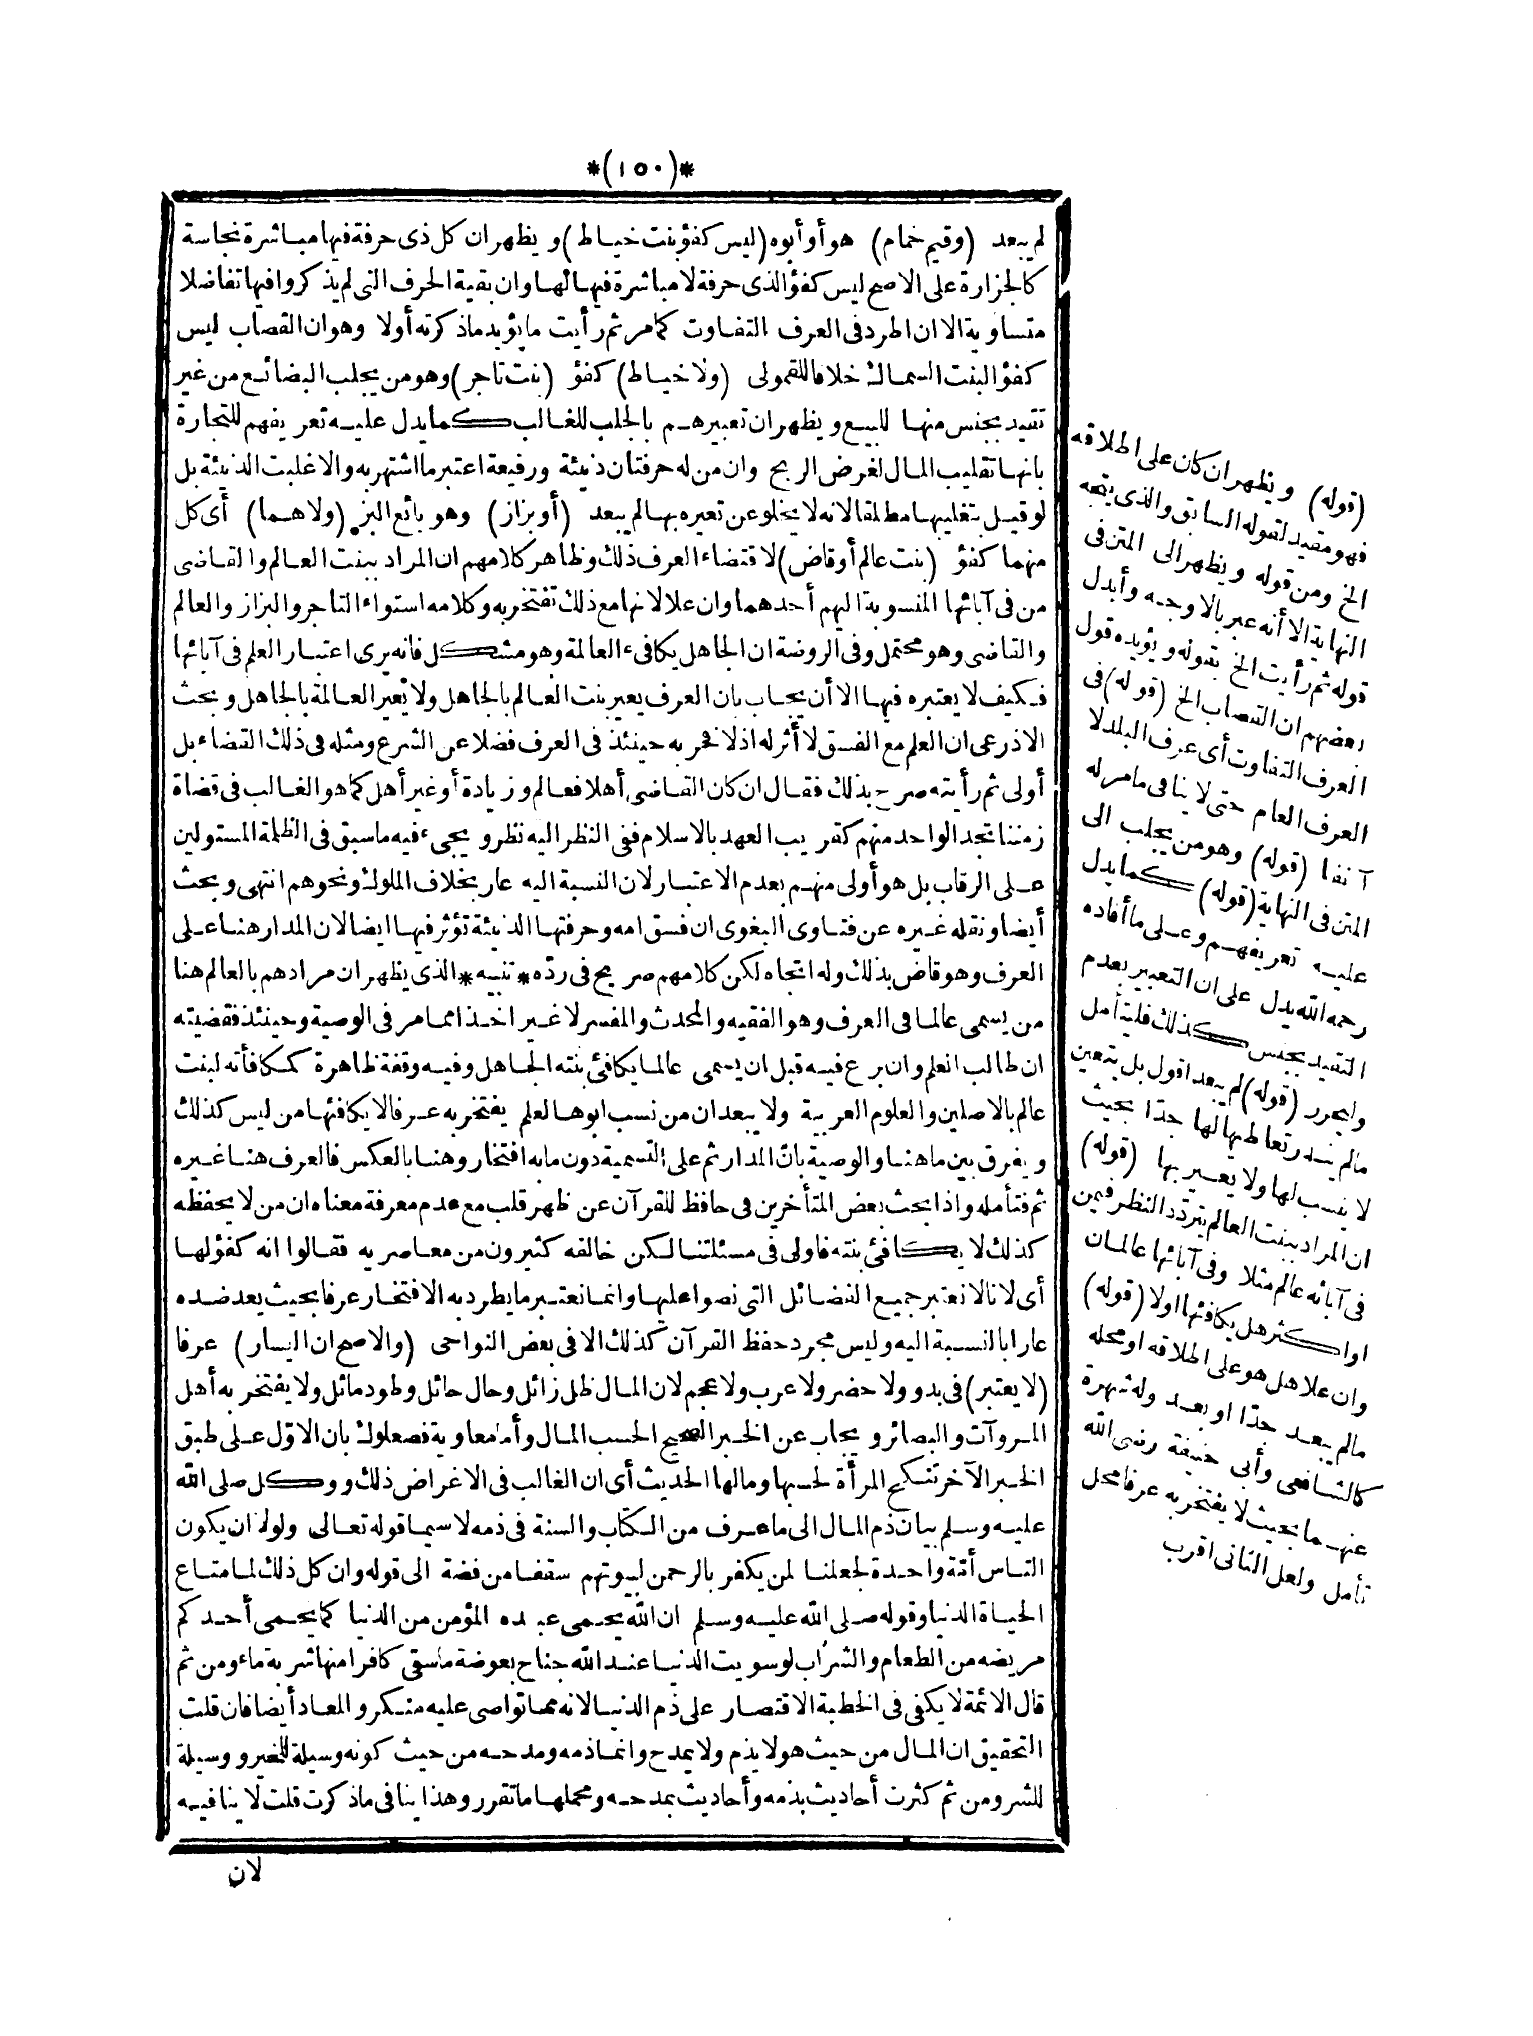 *(١٥٠)*
لم يبعد (وقيم حمام) هو أو أبوه (ليس كفؤ بنت خياط) ويظهر ان كل ذى حرفة فيها مباشرة نجاسة
كالجزارة على الاصح ليس كفؤ الذى حرفة لا مباشرة فيها لها وان بقية الحرف التى لم يذكروا فيها تفاضلا
متساوية الا ان اطرد فى العرف التفاوت كما مر ثم رأيت ما يؤيد ما ذكرته أولا وهو ان القصاب ليس
كفؤ البنت السماك خلافا للقمولى (ولا خياط) كفؤ (بنت تاجر) وهو من يجلب البضائع من غير
تقيد بجنس منها للبيع ويظهر ان تعبيرهم بالجلب للغالب كما يدل عليه تعريفهم للتجارة
بانها تقليب المال لغرض الربح وان من له حرفتان دنيئة ورفيعة اعتبر ما اشتهر به والا غلبت الدنيئة بل
لو قيل بتغليبها مطلقا لانه لا يخلو عن تعيره بها لم يبعد (أو بزاز) وهو بائع البز (ولا هما) أى كل
منهما كفؤ (بنت عالم أو قاض) لاقتضاء العرف ذلك وظاهر كلامهم ان المراد ببنت العالم والقاضى
من فى آبائها المنسوبة اليهم أحدهما وان علا لانها مع ذلك تفتخر به وكلامه استواء التاجر والبزاز والعالم
والقاضى وهو محتمل وفى الروضة ان الجاهل يكافىء العالمة وهو مشكل فانه يرى اعتبار العلم فى آبائها
فكيف لا يعتبره فيها الا أن يجاب بان العرف يعير بنت العالم بالجاهل ولا يعير العالمة بالجاهل وبحث
الاذرعى ان العلم مع الفسق لا أثر له اذ لا فخر به حينئذ فى العرف فضلا عن الشرع ومثله فى ذلك القضاء بل
أولى ثم رأيته صرح بذلك فقال ان كان القاضى أهلا فعالم وزيادة أو غير أهل كما هو الغالب فى قضاة
زمننا تجد الواحد منهم كقريب العهد بالاسلام ففى النظر اليه نظر ويجىء فيه ما سبق فى الظلمة المستولين
على الرقاب بل هو أولى منهم بعدم الاعتبار لان النسبة اليه عار بخلاف الملوك ونحوهم انتهى وبحث
أيضا ونقله غيره عن فتاوى البغوى ان فسق امه وحرفتها الدنيئة تؤثر فيها ايضا لان المدار هنا على
العرف وهو قاض بذلك وله اتجاه لكن كلامهم صريح فى ردّه *تنبيه* الذى يظهر ان مرادهم بالعالم هنا
من يسمى عالما فى العرف وهو الفقيه والمحدث والمفسر لا غير اخذا مما مر فى الوصية وحينئذ فقضيته
ان طالب العلم وان برع فيه قبل ان يسمى عالما يكافئ بنته الجاهل وفيه وقفة ظاهرة كمكافأته لبنت
عالم بالاصلين والعلوم العربية ولا يبعد ان من نسب ابوها لعلم يفتخر به عرفا لا يكافئها من ليس كذلك
ويفرق بين ما هنا والوصية بانّ المدار ثم على التسمية دون ما به افتخار وهنا بالعكس فالعرف هنا غيره
ثم فتأمله واذا بحث بعض المتأخرين فى حافظ للقرآن عن ظهر قلب مع عدم معرفة معناه ان من لا يحفظه
كذلك لا يكافئ بنته فاولى فى مسئلتنا لكن خالفه كثيرون من معاصريه فقالوا انه كفؤ لها
أى لانا لا نعتبر جميع الفضائل التى نصوا عليها وانما نعتبر ما يطرد به الافتخار عرفا بحيث يعد ضده
عارا بالنسبة اليه وليس مجرد حفظ القرآن كذلك الا فى بعض النواحى (والاصح ان اليسار) عرفا
(لا يعتبر) فى بدو ولا حضر ولا عرب ولا عجم لان المال ظل زائل وحال حائل وطود مائل ولا يفتخر به أهل
المروآت والبصائر ويجاب عن الخبر الصحيح الحسب المال وأما معاوية فصعلوك بان الاوّل على طبق
الخبر الآخر تنكح المرأة لحسبها ومالها الحديث أى ان الغالب فى الاغراض ذلك ووكل صلى الله
عليه وسلم بيان ذم المال الى ما عرف من الكتاب والسنة فى ذمه لا سيما قوله تعالى ولولا ان يكون
الناس أمّة واحدة لجعلنا لمن يكفر بالرحمن لبيوتهم سقفا من فضة الى قوله وان كل ذلك لما متاع
الحياة الدنيا وقوله صلى الله عليه وسلم ان الله يحمى عبده المؤمن من الدنيا كما يحمى أحدكم
مريضه من الطعام والشراب لو سويت الدنيا عند الله جناح بعوضة ما سقى كافرا منها شربة ماء ومن ثم
قال الائمة لا يكفى فى الخطبة الاقتصار على ذم الدنيا لانه مما تواصى عليه منكر والمعاد أيضا فان قلت
التحقيق ان المال من حيث هو لا يذم ولا يمدح وانما ذمه ومدحه من حيث كونه وسيلة للخير ووسيلة
للشر ومن ثم كثرت أحاديث بذمه وأحاديث بمدحه ومحملها ما تقرر وهذا ينافى ما ذكرت قلت لا ينافيه
لان
(قوله) ويظهر ان كان على اطلاقه
فهو مقيد لقوله السابق والذى يتجه
الخ ومن قوله ويظهر الى المتن فى
النهاية الا أنه عبر بالاوجه وأبدل
قوله ثم رأيت الخ بقوله ويؤيده قول
بعضهم ان القصاب الخ (قوله) فى
العرف التفاوت أى عرف البلد لا
العرف العام حتى لا ينافى ما مر له
آنفا (قوله) وهو من يجلب الى
المتن فى النهاية (قوله) كما يدل
عليه تعريفهم وعلى ما أفاده
رحمه الله يدل على ان التعبير بعدم
التقيد بجنس كذلك فليتأمل
وليحرر (قوله) لم يبعد اقول بل يتعين
ما لم يندر تعاطيها لها جدّا بحيث
لا ينسب لها ولا يعير بها (قوله)
ان المراد ببنت العالم يتردّد النظر فيمن
فى آبائه عالم مثلا وفى آبائها عالمان
او اكثر هل يكافئها اولا (قوله)
وان علا هل هو على اطلاقه او محله
ما لم يبعد جدّا او بعد وله شهرة
كالشافعى وأبى حنيفة رضى الله
عنهما بحيث لا يفتخر به عرفا محل
تأمل ولعل الثانى اقرب